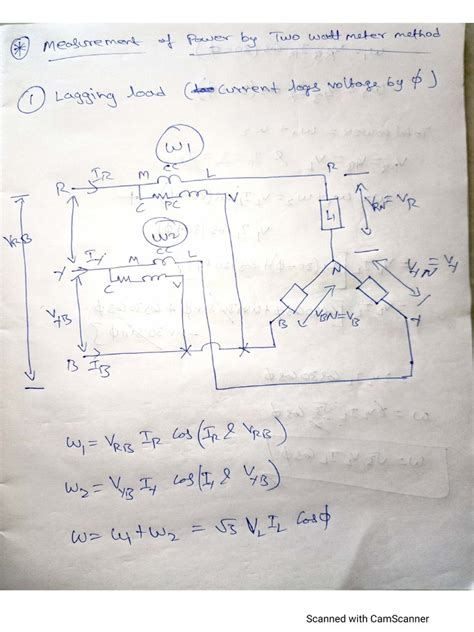 * Measurement of Power by Two watt meter method
① Lagging load (current lags voltage by ϕ)
W1
R IR M CC L R
C PC V
L1
VRN=VR
W2
VRB
Y IY M CC L
C V
N
VYN=VY
VYB
B VBN=VB Y
B IB
W1 = VRB IR Cos (IR & VRB)
W2 = VYB IY Cos (IY & VYB)
W = W1 + W2 = √3 VL IL Cosϕ
Scanned with CamScanner